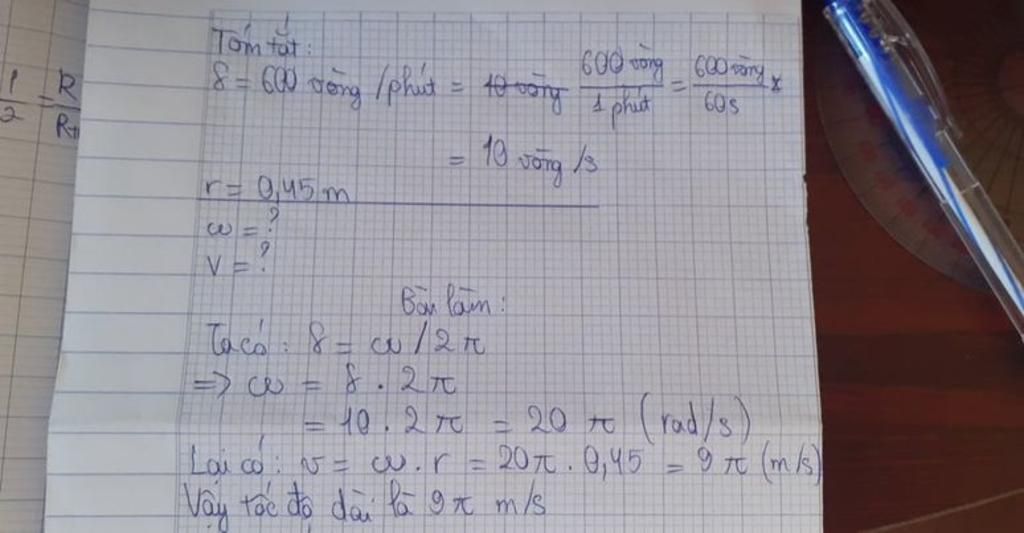 Tóm tắt:
f = 600 vòng /phút = 10 vòng 600 vòng / 1 phút = 600 vòng / 60s
= 10 vòng /s
r = 0,45 m
ω = ?
v = ?
Bài làm:
Ta có: f = ω / 2π
=> ω = f . 2π
= 10 . 2π = 20 π (rad/s)
Lại có: v = ω . r = 20π . 0,45 = 9 π (m/s)
Vậy tốc độ dài là 9π m/s
1/2 = R/R